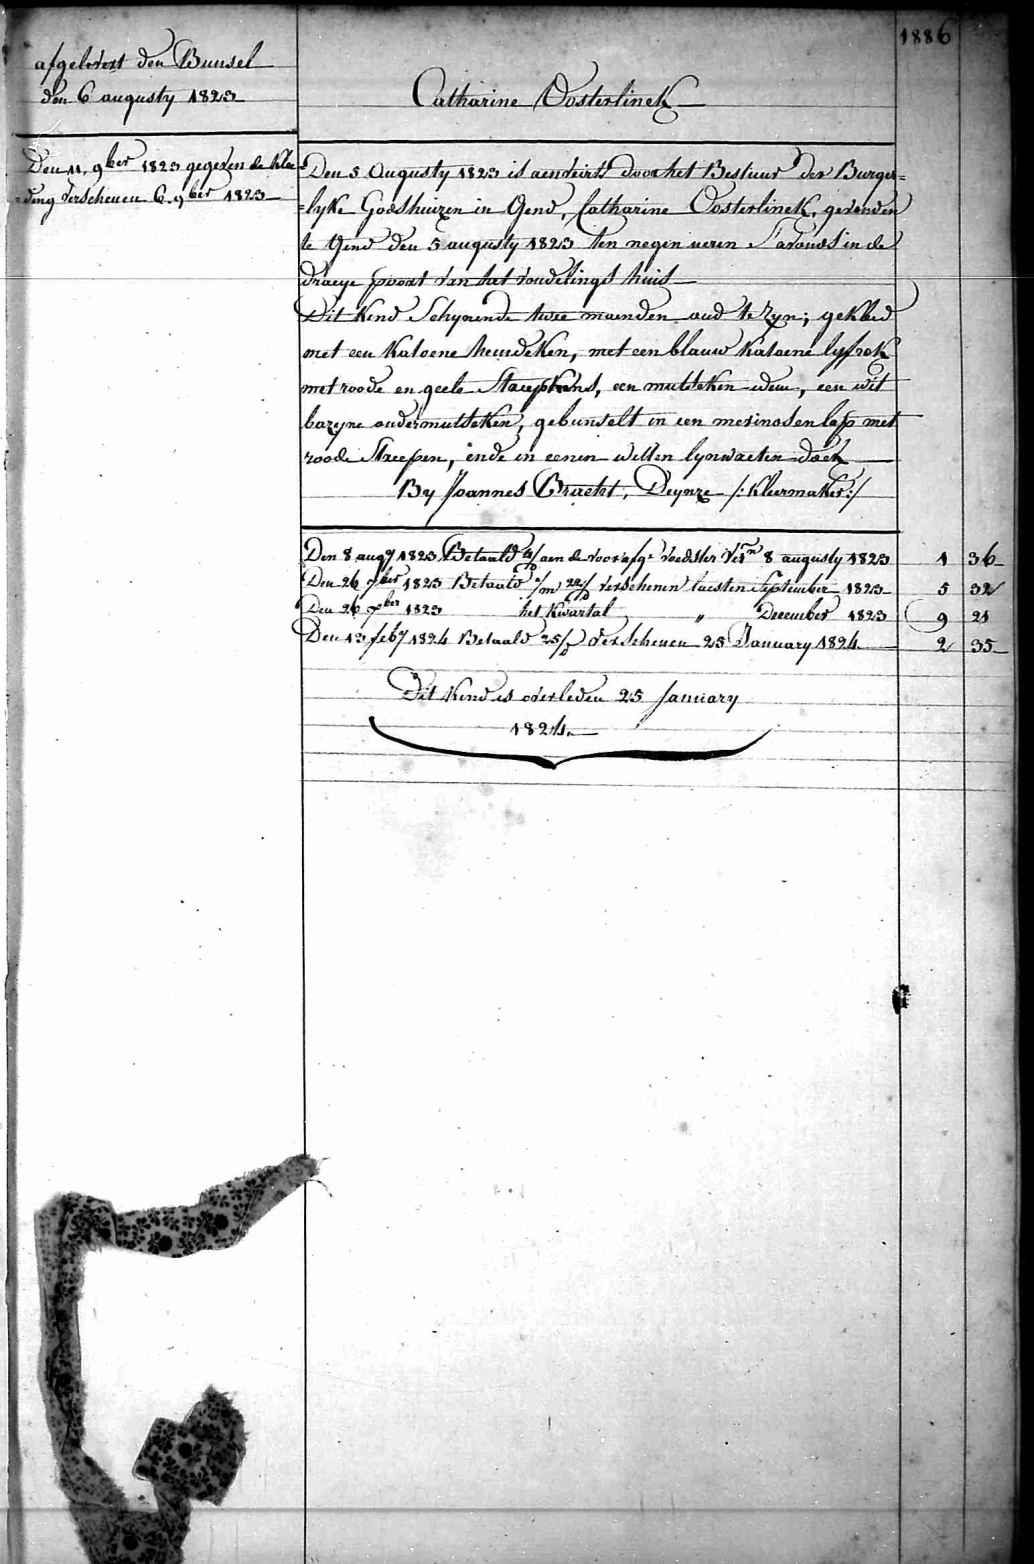 1886
afgelevert den Bunsel
den 6 augusty 1823
Catharine Oosterlinck
Den 11. 9ber 1823 gegeven de klee
=ding verschenen 6. 9ber 1823
Den 5 Augusty 1823 is aenveirt door het Bestuur der Burger=
=lyke Godshuizen in Gend, Catharine Oosterlinck, gevonden
te Gend den 5 augusty 1823 ten negen uren s'avonds in de
draeye poort van het vondelings huis
Dit Kind Schynende twee maenden oud te Zyn; gekleed
met een Katoene hemdeken, met een blauw Katoene lyfrok
met roode en geele Streepkens, een mutseken idem, een wit
bazyne ondermutseken, gebunselt in een merinossen lap met
roode Streepen, ende in eenen witten lynwaeten doek
By Joannes Bracht, Deynze /:Kleermaker:/
Den 8 augy 1823 Betaald aen de voorafge voedster 8 augusty 1823 1 36
Den 26 7ber 1823 Betaald verschenen laesten September 1823 5 32
Den 26 xber 1823 het Kwartal " December 1823 9 21
Den 13 feby 1824 Betaald 25/ verschenen 25 January 1824 2 35
Dit Kind is overleden 25 January
1824.